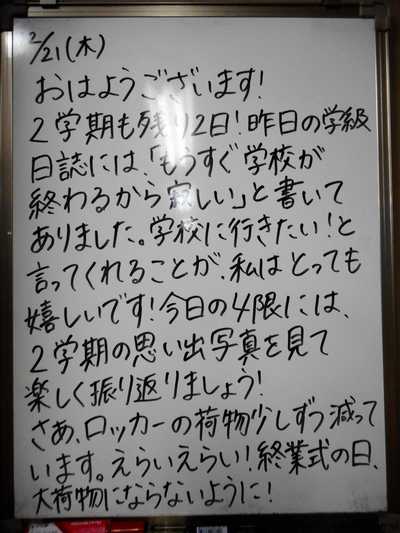 2/21(木)
おはようございます!
2学期も残り2日!昨日の学級
日誌には、「もうすぐ学校が
終わるから寂しい」と書いて
ありました。学校に行きたい!と
言ってくれることが、私はとっても
嬉しいです!今日の4限には、
2学期の思い出写真を見て
楽しく振り返りましょう!
さあ、ロッカーの荷物少しずつ減って
います。えらいえらい!終業式の日、
大荷物にならないように!